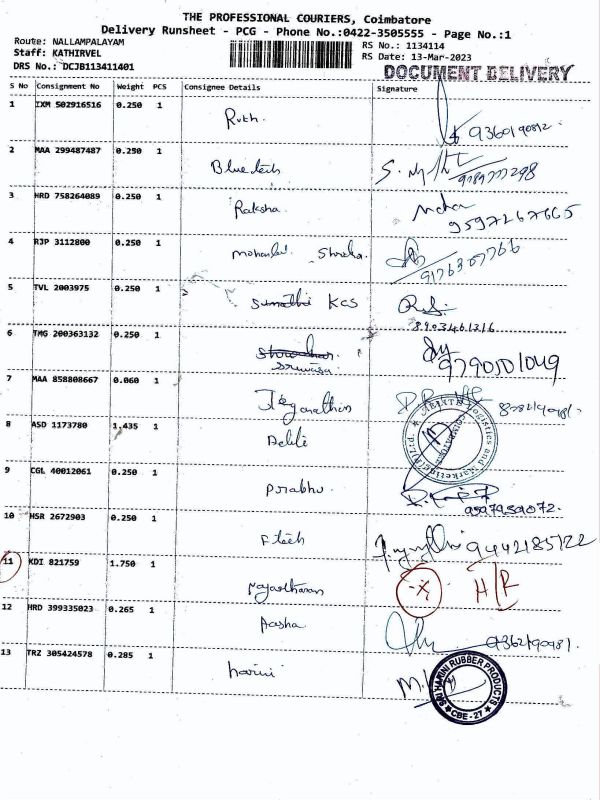 THE PROFESSIONAL COURIERS, Coimbatore
Delivery Runsheet - PCG - Phone No.:0422-3505555 - Page No.:1
Route: NALLAMPALAYAM
RS No.: 1134114
Staff: KATHIRVEL
RS Date: 13-Mar-2023
DRS No.: DCJB113411401
DOCUMENT DELIVERY
S No Consignment No Weight PCS Consignee Details Signature
1 IXM 502916516 0.250 1 Ruth. 9360190812.
2 MAA 299487487 0.250 1 Bluetech
3 HRD 758264089 0.250 1 Raksha. 9597267665
4 RJP 3112800 0.250 1 9176307766
5 TVL 2003975 0.250 1 KCS
8903461216
6 TMG 200363132 0.250 1 9790501049
7 MAA 858808667 0.060 1
8 ASD 1173780 1.435 1
ABIXTH Logistics and Marketing (P) Ltd.
9 CGL 40012061 0.250 1 Prabhu.
9597959072.
10 HSR 2672903 0.250 1 F tech 9442185122
11 KDI 821759 1.750 1 H/R
12 HRD 399335023 0.265 1 Aasha 9362190981.
13 TRZ 305424578 0.285 1 harini
SRI HARINI RUBBER PRODUCTS
CBE-27